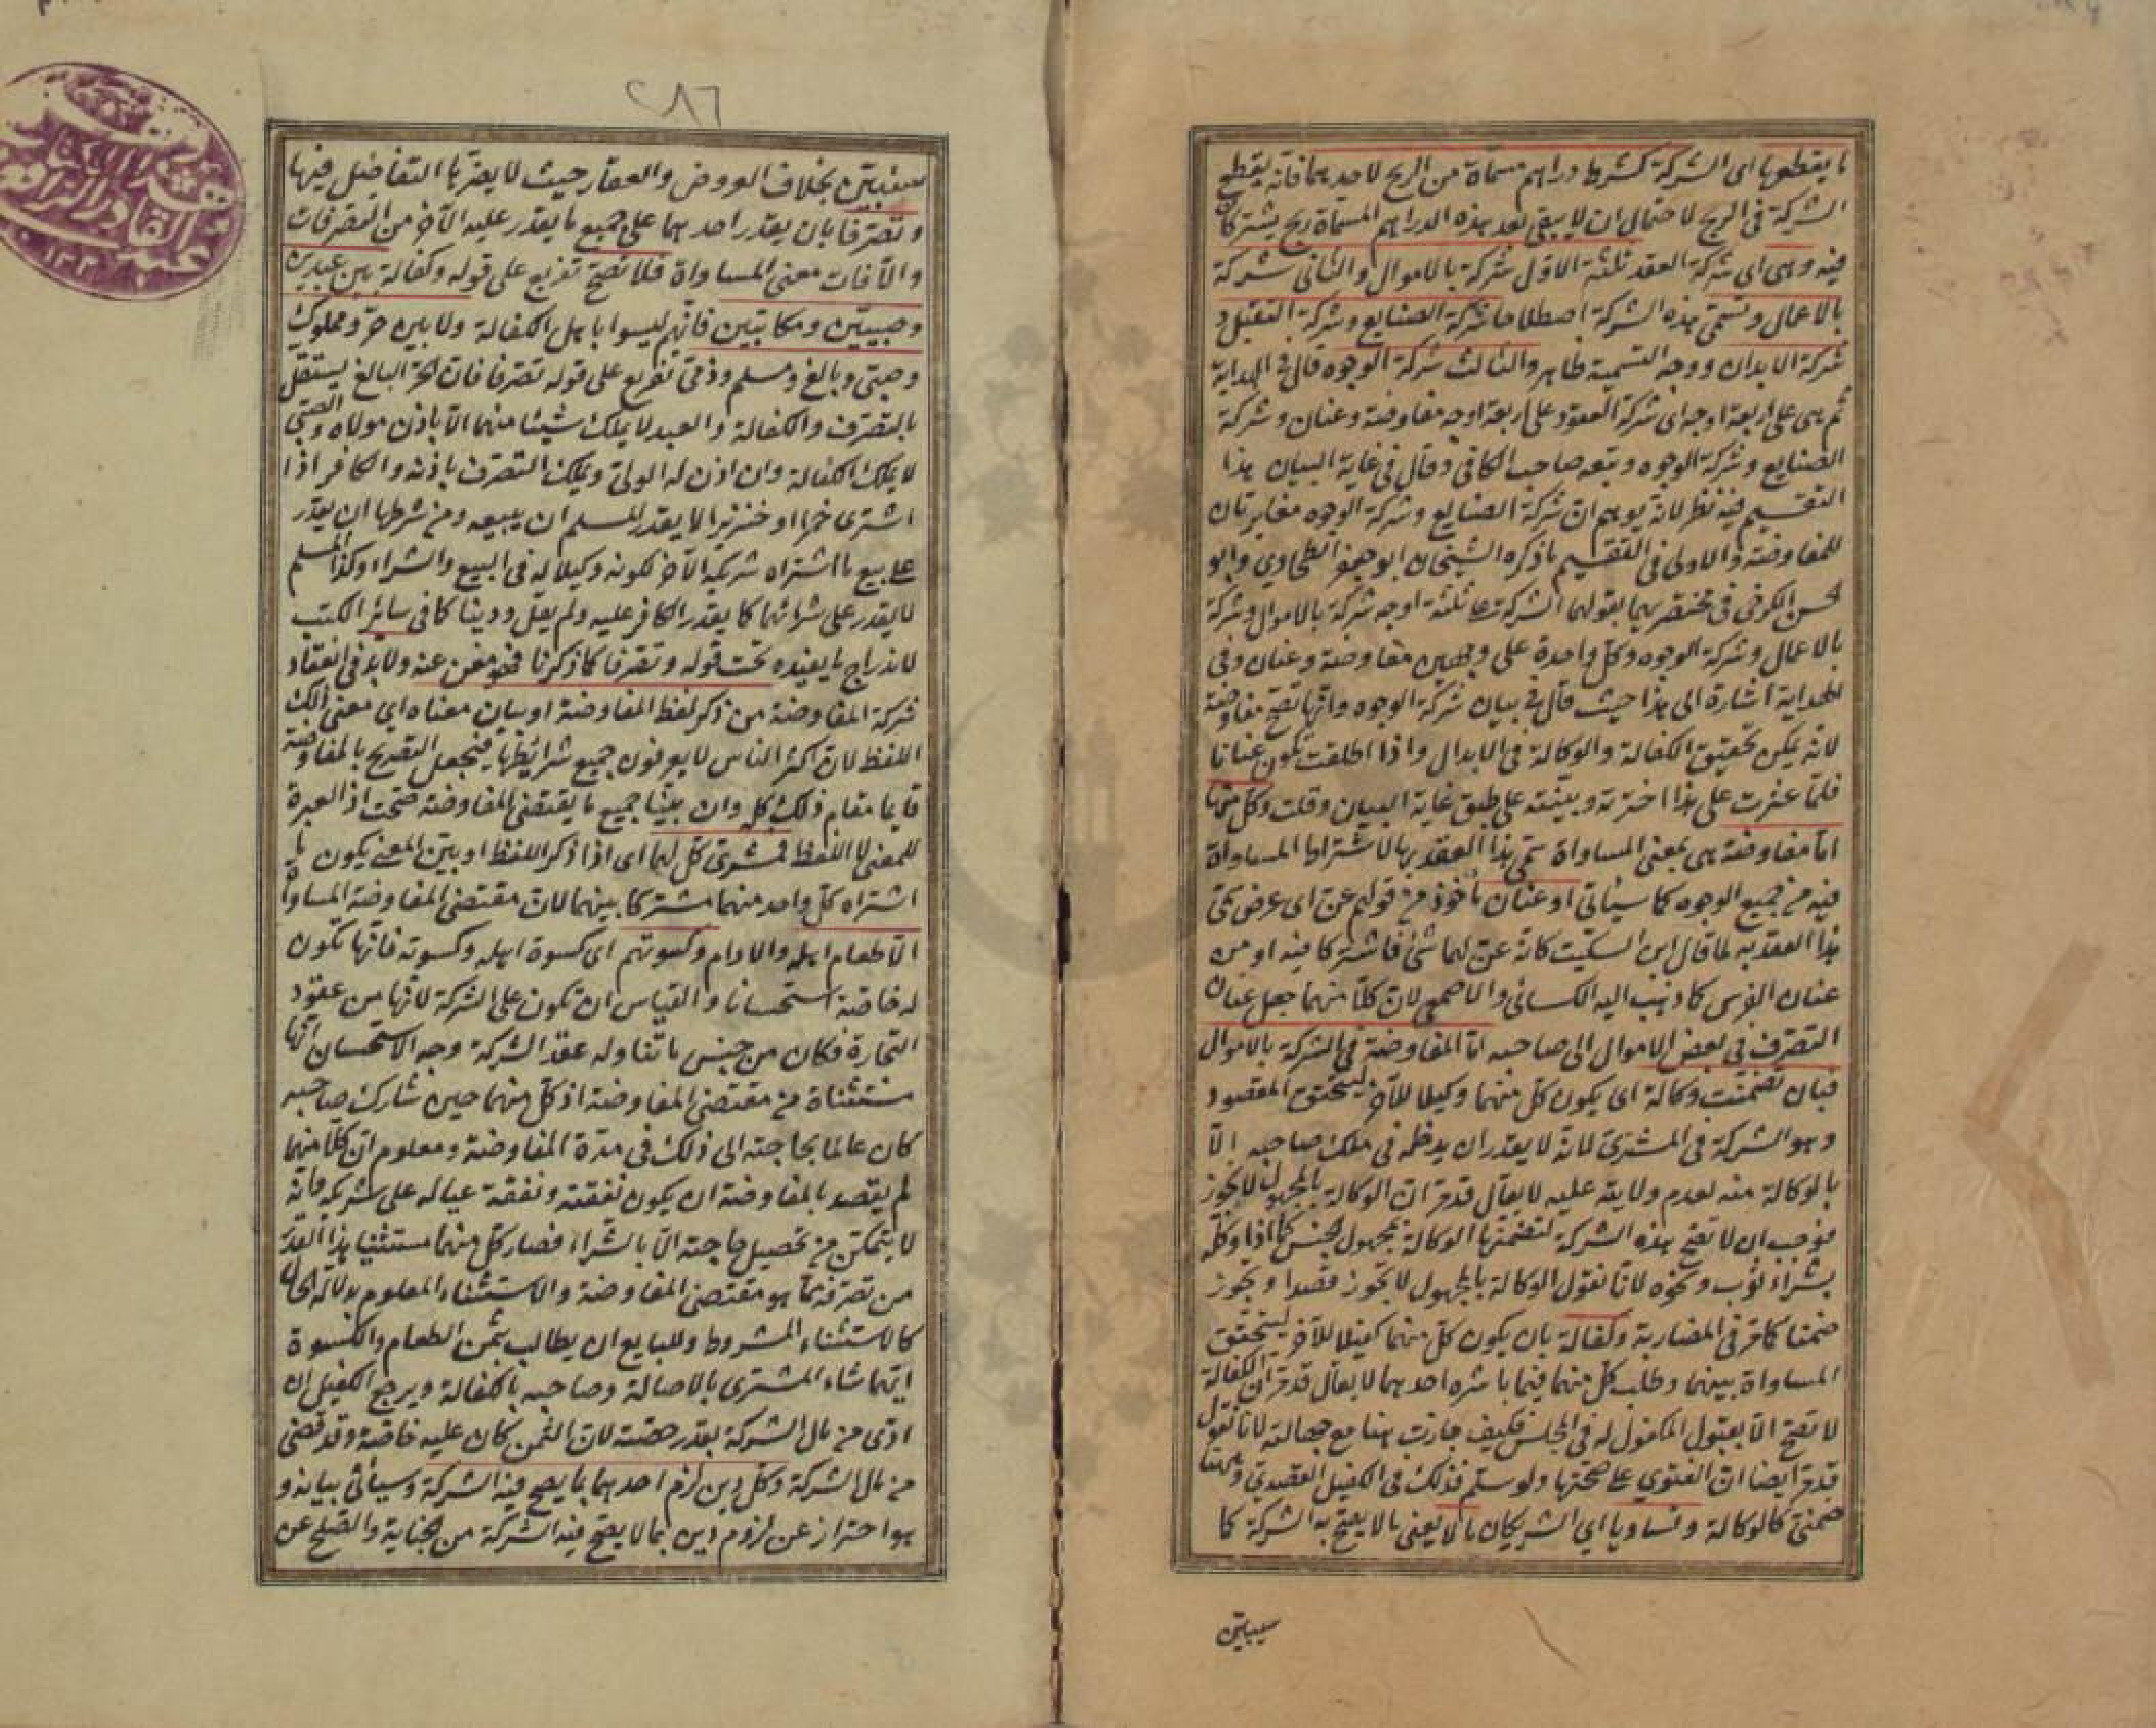 ما يقطعها اى الشركة كشرط دراهم مسماة من الربح لاحدهما فانه يقطع
الشركة فى الربح لاحتمال ان لا يبقى بعد هذه الدراهم المسماة ربح يشتركان
فيه وهى اى شركة العقد ثلثة الاول شركة بالاموال والثانى شركة
بالاعمال وتسمى هذه الشركة اصطلاحا شركة الصنايع وشركة التقبل و
شركة الابدان ووجه التسمية ظاهر والثالث شركة الوجوه قال فى الهداية
ثم هى على اربعة اوجه اى شركة العقود على اربعة اوجه مفاوضة وعنان وشركة
الصنايع وشركة الوجوه وتبعه صاحب الكافى وقال فى غاية البيان هذا
التقسيم فيه نظر لانه يوهم ان شركة الصنايع وشركة الوجوه مغايرتان
للمفاوضة والاولى فى التقسيم ما ذكره الشيخان ابو جعفر الطحاوي وابو
الحسن الكرخى فى مختصريهما بقولهما الشركة على ثلثة اوجه شركة بالاموال وشركة
بالاعمال وشركة الوجوه وكل واحدة على وجهين مفاوضة وعنان وفى
الهداية اشارة الى هذا حيث قال فى بيان شركة الوجوه وانها تصح مفاوضة
لانه يمكن تحقيق الكفالة والوكالة فى الابدال واذا اطلقت تكون عنانا
فلما عثرت على هذا اخترته وبينته على طبق غاية البيان وقلت وكل منها
اما مفاوضة هى بمعنى المساواة سمى هذا العقد بها لاشتراط المساواة
فيه من جميع الوجوه كما سيأتى او عنان مأخوذ من قولهم عن اى عرض سمى
هذا العقد به لما قال ابن السكيت كانه عن لهما شئ فاشتركا فيه او من
عنان الفرس كما ذهب اليه الكسائى والاصمعى لان كلا منهما جعل عنان
التصرف فى بعض الاموال الى صاحبه اما المفاوضة فى الشركة بالاموال
فبان تضمنت وكالة اى يكون كل منهما وكيلا للآخر ليتحقق المقصود
وهو الشركة فى المشترى لانه لا يقدر ان يدخله فى ملك صاحبه الا
بالوكالة منه لعدم ولايته عليه لا يقال قد مر ان الوكالة بالمجهول لا يجوز
فوجب ان لا تصح هذه الشركة لتضمنها الوكالة بمجهول الجنس كما اذا وكله
بشراء ثوب ونحوه لانا نقول الوكالة بالمجهول لا يجوز قصدا ويجوز
ضمنا كما مر فى المضاربة وكفالة بان يكون كل منهما كفيلا للآخر ليتحقق
المساواة بينهما وطلب كل منهما فيما باشره احدهما لا يقال قد مر ان الكفالة
لا تصح الا بقبول المكفول له فى المجلس فكيف جازت هنا مع جهالته لانا نقول
قد مر ايضا ان الفتوى على صحتها ولو سلم فذلك فى الكفيل القصدى وههنا
ضمنى كالوكالة وتساويا اى الشريكان مالا يعنى مالا يصح به الشركة كما
سيبين
٢٨٦
سيبين بخلاف العروض والعقار حيث لا يضر بها التفاضل فيها
وتصرفا بان يقدر احدهما على جميع ما يقدر عليه الآخر من التصرفات
والا فات معنى المساواة فلا تصح تفريع على قوله وكفالة بين عبدين
وصبيين ومكاتبين فانهم ليسوا باهل الكفالة ولا بين حر ومملوك
وصبى وبالغ ومسلم وذمى تفريع على قوله تصرفا فان الحر البالغ يستقل
بالتصرف والكفالة والعبد لا يملك شيئا منهما الا باذن مولاه والصبى
لا يملك الكفالة وان اذن له الولى ويملك التصرف باذنه والكافر اذا
اشترى خمرا او خنزيرا لا يقدر المسلم ان يبيعه ومن شرطها ان يقدر
على بيع ما اشتراه شريكه الآخر لكونه وكيلا له فى البيع والشراء وكذا المسلم
لا يقدر على شرائهما كما يقدر الكافر عليه ولم يقل ودينا كما فى سائر الكتب
لاندراج ما يفيده تحت قوله وتصرفا كما ذكرنا فهو مغن عنه ولا بد فى انعقاد
شركة المفاوضة من ذكر لفظ المفاوضة او بيان معناه اى معنى ذلك
اللفظ لان اكثر الناس لا يعرفون جميع شرائطها فيجعل التصريح بالمفاوضة
قايما مقام ذلك كله وان بينا جميع ما يقتضى المفاوضة صحت اذ العبرة
للمعنى لا اللفظ فمشرى كل لهما اى اذا ذكر اللفظ او بين المعنى يكون ما
اشتراه كل واحد منهما مشتركا بينهما لان مقتضى المفاوضة المساواة
الا طعام اهله والادام وكسوتهم اى كسوة اهله وكسوته فانها تكون
له خاصة استحسانا والقياس ان تكون على الشركة لانها من عقود
التجارة فكان من جنس ما تناوله عقد الشركة وجه الاستحسان انها
مستثناة من مقتضى المفاوضة اذ كل منهما حين شارك صاحبه
كان عالما بحاجته الى ذلك فى مدة المفاوضة ومعلوم ان كلا منهما
لم يقصد بالمفاوضة ان يكون نفقته ونفقة عياله على شريكه وانه
لا يتمكن من تحصيل حاجته الا بالشراء فصار كل منهما مستثنيا هذا القدر
من تصرفه مما هو مقتضى المفاوضة والاستثناء المعلوم بدلالة الحال
كالاستثناء المشروط وللبايع ان يطالب بثمن الطعام والكسوة
ايهما شاء المشترى بالاصالة وصاحبه بالكفالة ويرجع الكفيل ان
ادى من مال الشركة بقدر حصته لان الثمن كان عليه خاصة وقد قضى
من مال الشركة وكل دين لزم احدهما بما يصح فيه الشركة وسيأتى بيانه و
هو احتراز عن لزوم دين بما لا يصح فيه الشركة من الجناية والصلح عن